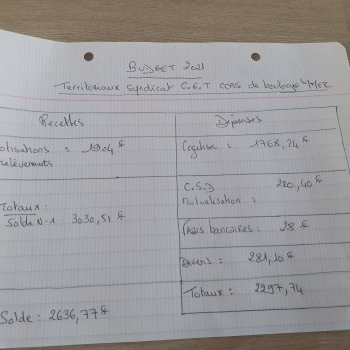 BUDGET 2021
Territoriaux syndicat C.G.T CCAS de
Recettes
Dépenses
otisations : 1904 €
relèvements
Cogetise : 1768,24 €
C.S.D 220,40 €
Mutualisation :
Totaux :
Solde N-1 3030,51 €
Frais bancaires : 28 €
Divers : 281,10 €
Totaux : 2297,74
Solde : 2636,77 €